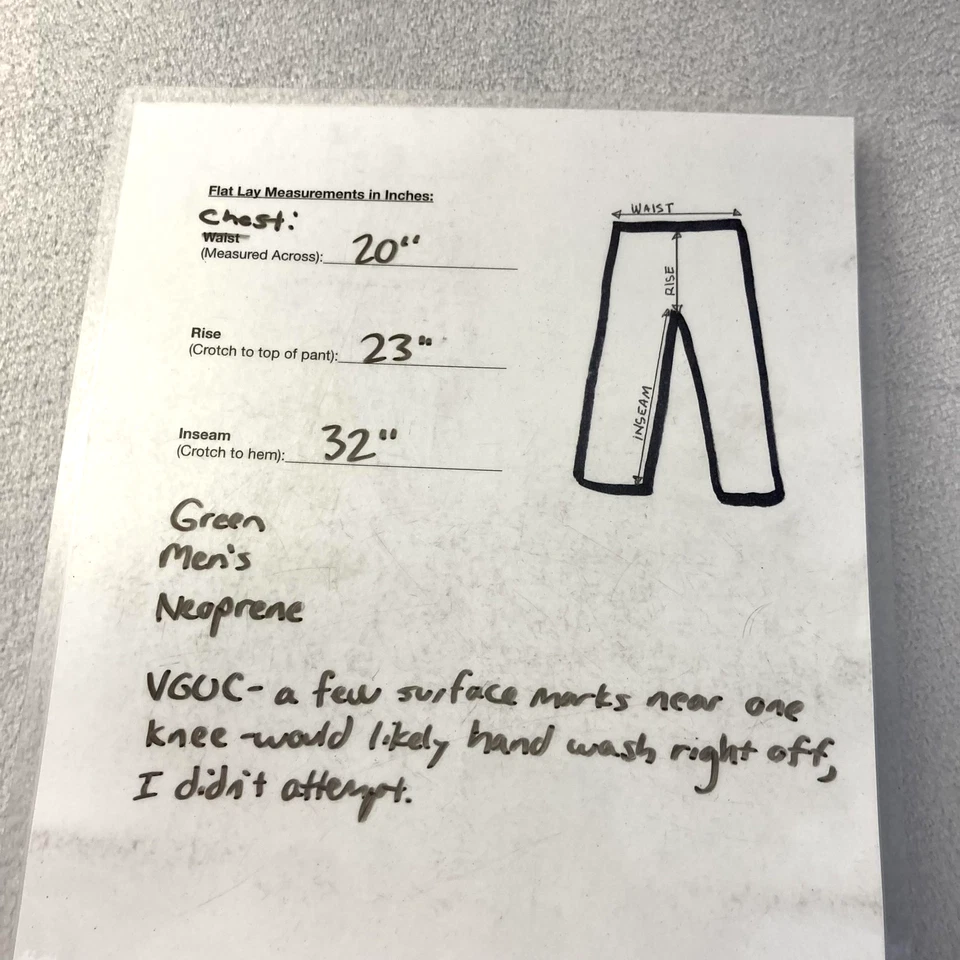 Flat Lay Measurements in Inches:
Chest:
Waist
(Measured Across): 20"
Rise
(Crotch to top of pant): 23"
Inseam
(Crotch to hem): 32"
WAIST
RISE
INSEAM
Green
Men's
Neoprene
VGUC- a few surface marks near one
knee -would likely hand wash right off,
I didn't attempt.